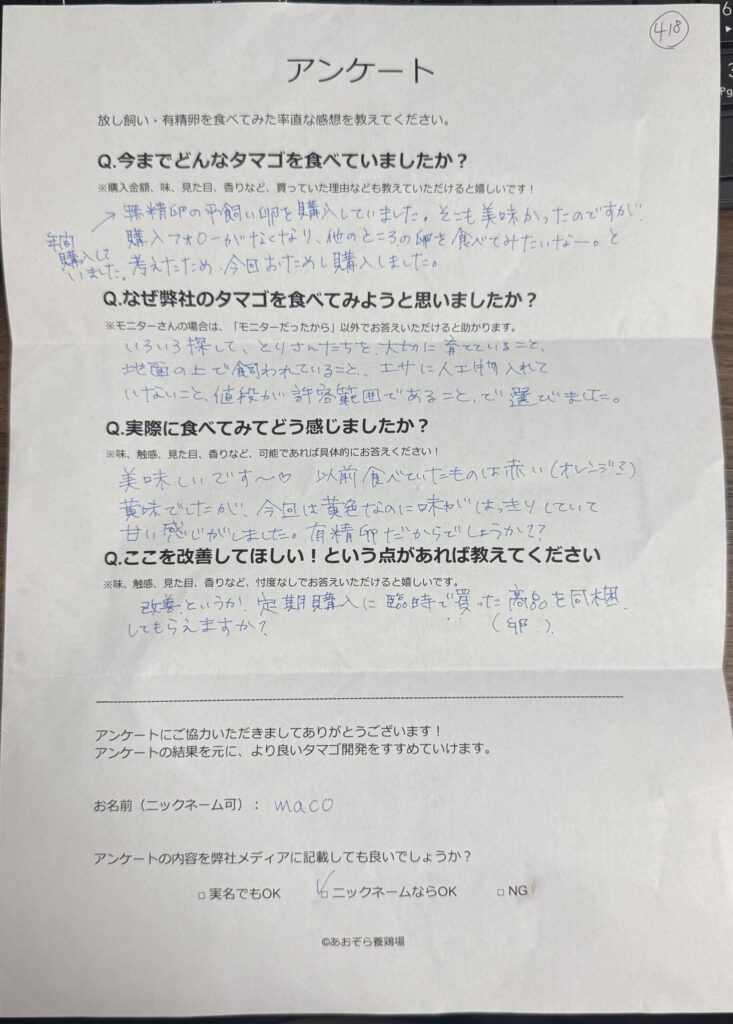 418
アンケート
放し飼い・有精卵を食べてみた率直な感想を教えてください。
Q.今までどんなタマゴを食べていましたか？
※購入金額、味、見た目、香りなど、買っていた理由なども教えていただけると嬉しいです！
→無精卵の平飼い卵を購入していました。そこも美味かったのですが、
年間購入していました。
購入フォローがなくなり、他のところの卵を食べてみたいなー。と
考えたため、今回おためし購入しました。
Q.なぜ弊社のタマゴを食べてみようと思いましたか？
※モニターさんの場合は、「モニターだったから」以外でお答えいただけると助かります。
いろいろ探して、とりさんたちを、大切に育てていること、
地面の土で飼われていること、エサに人工物入れて
いないこと、値段が許容範囲であること、で選びました。
Q.実際に食べてみてどう感じましたか？
※味、触感、見た目、香りなど、可能であれば具体的にお答えください！
美味しいです〜♡ 以前食べていたものは赤い(オレンジ?)
黄味でしたが、今回は黄色なのに味がはっきりしていて
甘い感じがしました。有精卵だからでしょうか??
Q.ここを改善してほしい！という点があれば教えてください
※味、触感、見た目、香りなど、忖度なしでお答えいただけると嬉しいです。
改善というか、定期購入に臨時で買った商品を同梱
(卵)
してもらえますか?
アンケートにご協力いただきましてありがとうございます！
アンケートの結果を元に、より良いタマゴ開発をすすめていけます。
お名前（ニックネーム可）： maco
アンケートの内容を弊社メディアに記載しても良いでしょうか？
□ 実名でもOK ☑ ニックネームならOK □ NG
©あおぞら養鶏場